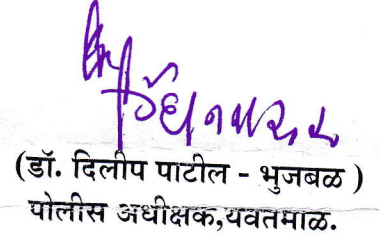 (डॉ. दिलीप पाटील - भुजबळ )
पोलीस अधीक्षक,यवतमाळ.